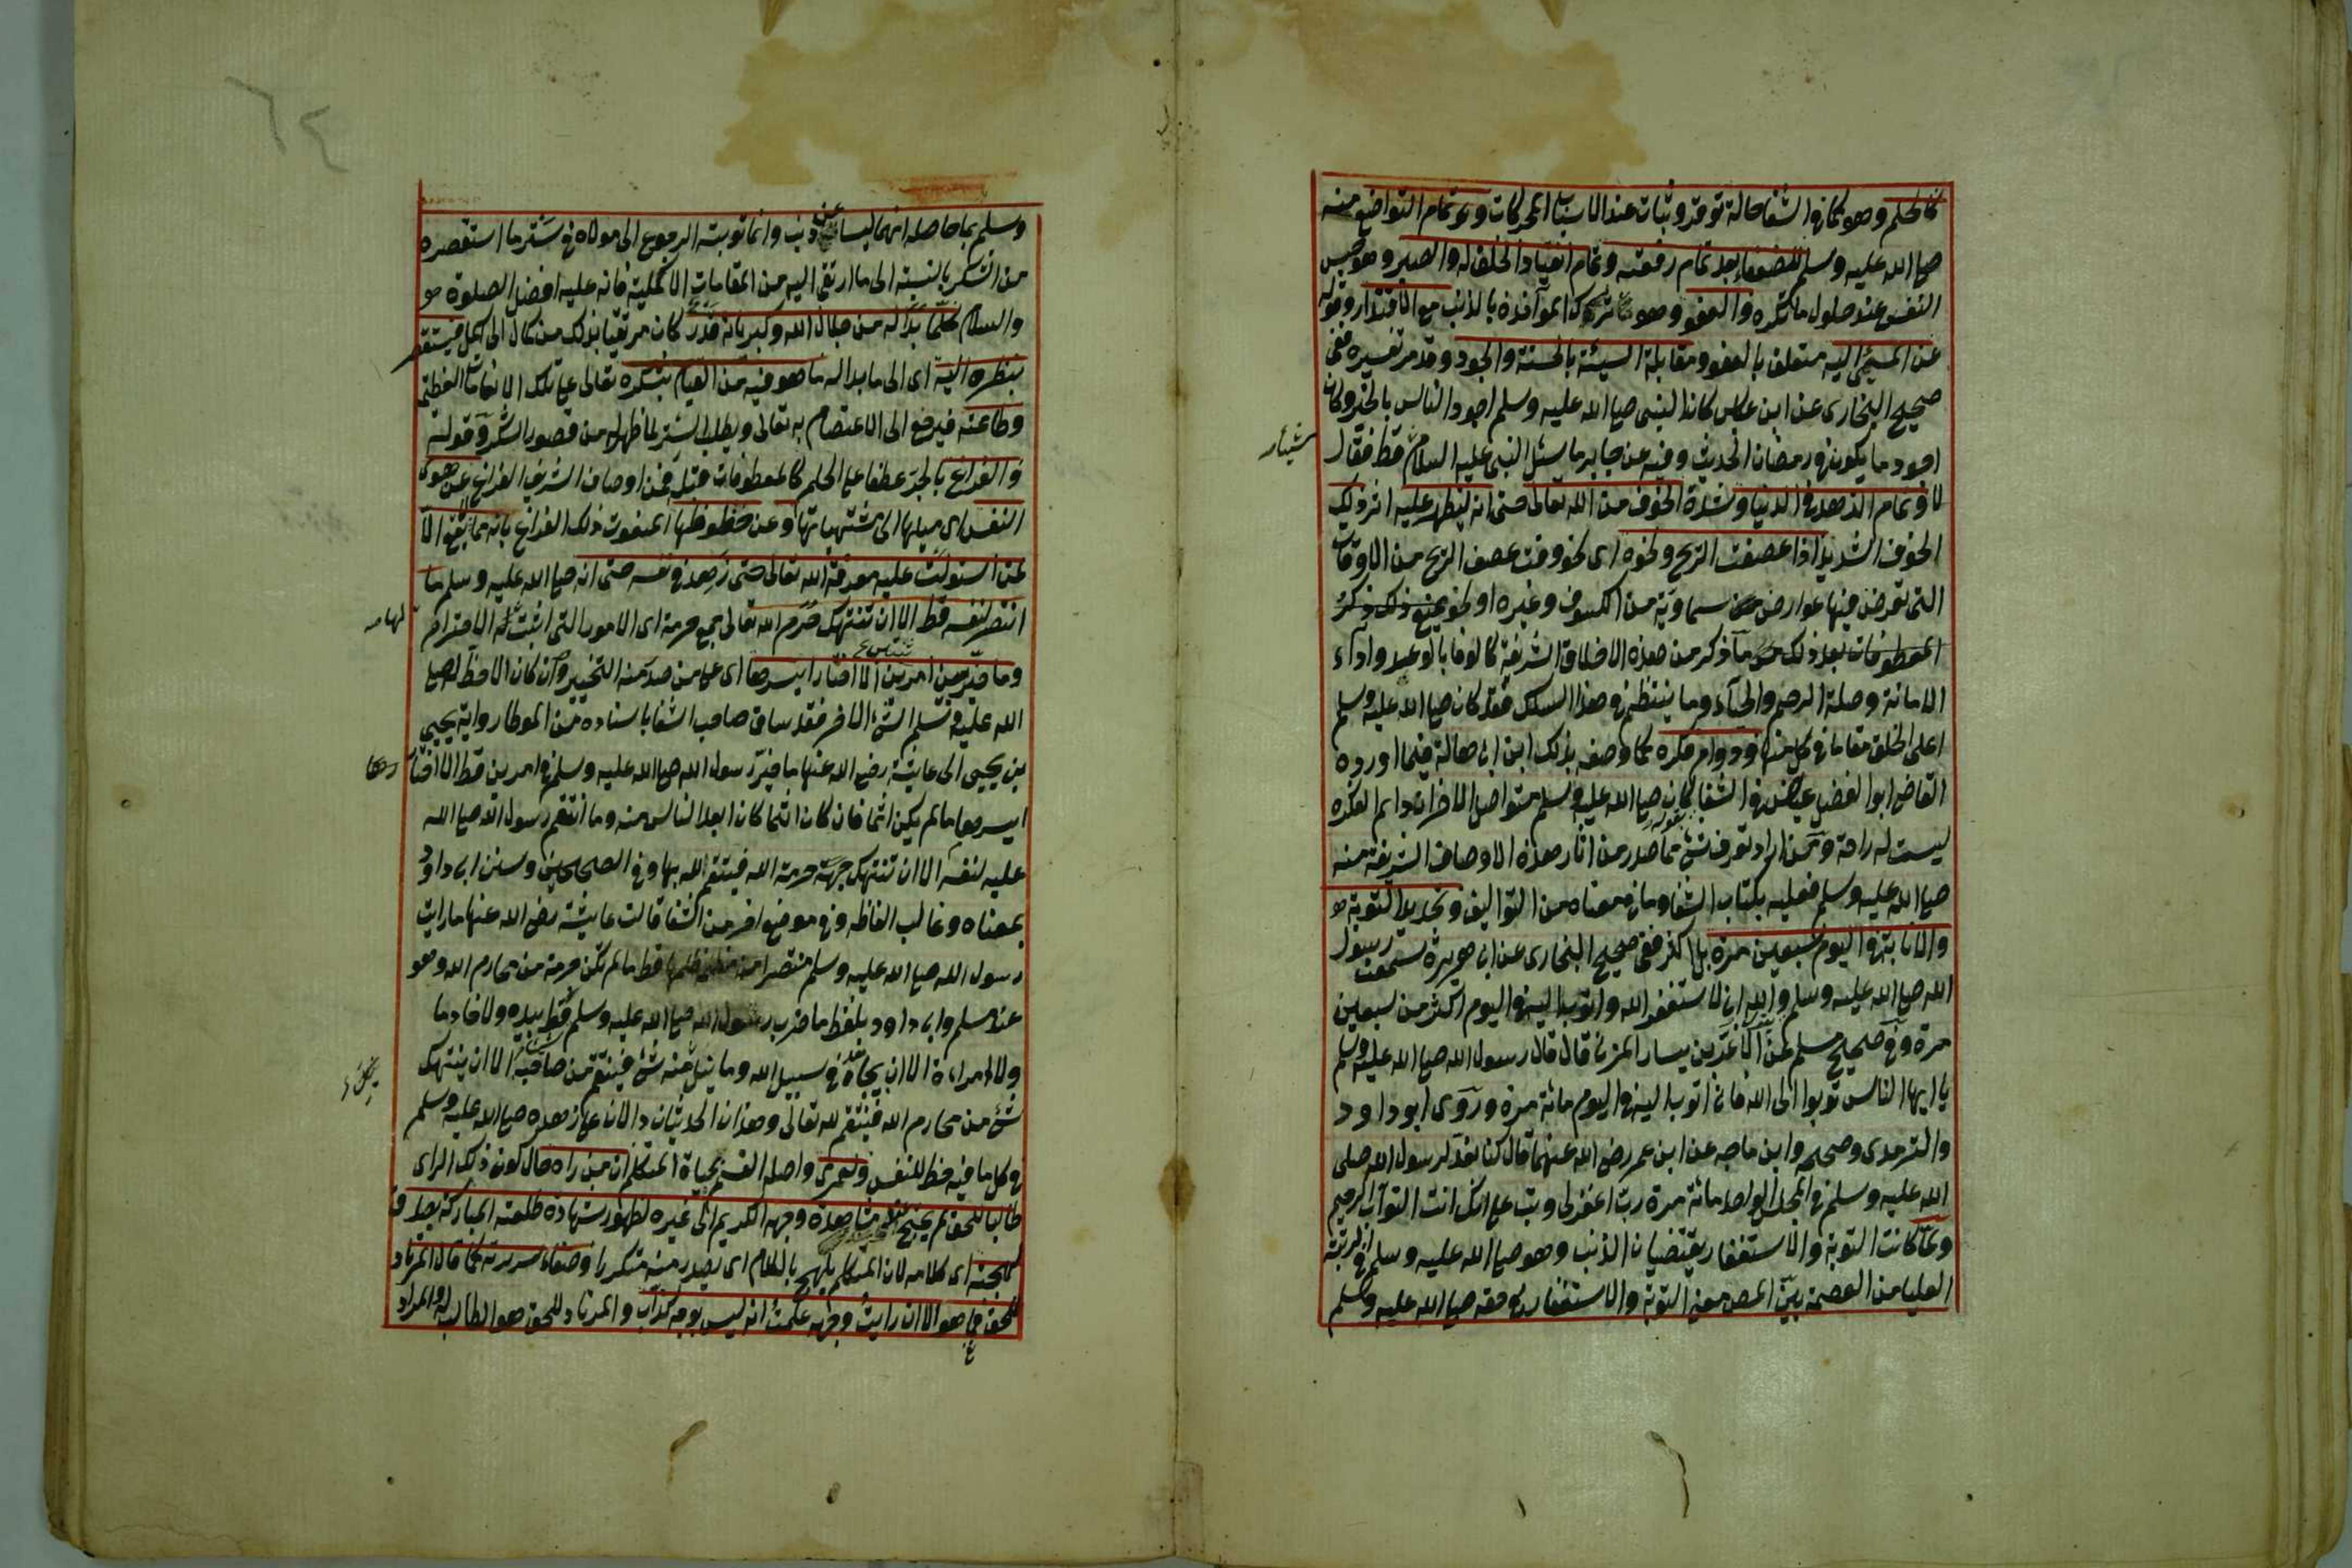 كالحلم وهو كما في الشفا حالة توقر وثبات عند الاسباب المحركات وتمام التواضع منه
صلى الله عليه وسلم للضعفاء بعد تمام رفعته وتمام انقياد الخلق له والصبر وهو حبس
النفس عند حلول ما تكره والعفو وهو ترك المواخذة بالذنب مع الاقتدار وقوله
عن المسيئ اليه متعلق بالعفو ومقابلة السيئة بالحسنة والجود وقد مر تفسيره ففي
صحيح البخارى عن ابن عباس كان النبى صلى الله عليه وسلم اجود الناس بالخير وكان
اجود ما يكون في رمضان الحديث وفيه عن جابر ما سئل النبى عليه السلام قط فقال
شيئا
لا وتمام الزهد في الدنيا وشدة الخوف من الله تعالى حتى انه ليظهر عليه اثر ذلك
الخوف الشديد اذا عصفت الريح ونحوه اى نحو وقت عصف الريح من الاوقات
التى تعرض فيها عوارض سماوية من الكسوف وغيره
المعطوفات بعد ذلك ما ذكر من هذه الاخلاق الشريفة كالوفا بالوعد واداء
الامانة وصلة الرحم والحياء وما ينتظم في هذا السلك فقد كان صلى الله عليه وسلم
اعلى الخلق مقاما في كل منها ودوام فكره كما وصفه بذلك ابن ابى هالة فيما اورده
القاضى ابو الفضل عياض في الشفا بقوله كان صلى الله عليه وسلم متواصل الاحزان دايم الفكرة
ليست له راحة ومن اراد تعرف شئ مما صدر من اثار هذه الاوصاف الشريفة منه
صلى الله عليه وسلم فعليه بكتاب الشفا وما في معناه من التواليف وتجديد التوبة
والانابة في اليوم سبعين مرة بل اكثر ففى صحيح البخارى عن ابى هريرة سمعت رسول
الله صلى الله عليه وسلم والله انى لاستغفر الله واتوب اليه في اليوم اكثر من سبعين
مرة وفى صحيح مسلم عن الاغر بن يسار المزنى قال قال رسول الله صلى الله عليه وسلم
يا ايها الناس توبوا الى الله فانى اتوب اليه في اليوم مائة مرة وروى ابو داود
والترمذى وصححه وابن ماجه عن ابن عمر رضى الله عنهما قال كنا نعد لرسول الله صلى
الله عليه وسلم في المجلس الواحد مائة مرة رب اغفر لى وتب على انك انت التواب الرحيم
ولما كانت التوبة والاستغفار يقتضيان الذنب وهو صلى الله عليه وسلم في الرتبة
العليا من العصمة بين المص معنى التوبة والاستغفار في حقه صلى الله عليه وسلم
٦٤
وسلم بما حاصله انهما ليسا عن ذنب وانما توبته الرجوع الى مولاه في ستر ما استقصره
من الشكر بالنسبة الى ما ارتقى اليه من المقامات الاكملية فانه عليه افضل الصلوة
والسلام كلما بدا له من جلال الله وكبريائه قدر كان مرتقيا بذلك من كمال الى اكمل فيستقصر
بنظره اليه اى الى ما بدا له ما هو فيه من القيام بشكره تعالى على تلك الانعامات العظيمة
وطاعته فيرفع الى الاعتصام به تعالى ويطلب الستر لما ظهر له من قصور الشكر وقوله
والفراغ بالجر عطفا على الحلم كالمعطوفات قبله فمن اوصاف الشريف الفراغ عن هوى
النفس اى ميلها الى مشتهياتها وعن حظوظها المنعوت ذلك الفراغ بانه مما يقع الا
لمن استولت عليه معرفة الله تعالى حتى زهد في نفسه حتى انه صلى الله عليه وسلم ما
انتصر لنفسه قط الا ان تنتهك حرم الله تعالى جمع حرمة اى الامور التى اثبت لها الاحترام
وما خير بين امرين الا اختار ايسرهما اى على من صدر منه التخيير وان كان الاحظ له صلى
الله عليه وسلم الشئ الاخر فقد ساق صاحب الشفا باسناده من الموطا رواية يحيى
بن يحيى الى عايشة رضى الله عنها ما خير رسول الله صلى الله عليه وسلم في امرين قط الا اختار
ايسرهما ما لم يكن اثما فان كان اثما كان ابعد الناس منه وما انتقم رسول الله صلى الله
عليه لنفسه الا ان تنتهك حرمة الله فينتقم لله بها وفى الصحيحين وسنن ابى داود
بمعناه وغالب الفاظه وفى موضع اخر من الشفا قالت عايشة رضى الله عنها ما رايت
رسول الله صلى الله عليه وسلم منتصرا من مظلمة ظلمها قط ما لم تكن حرمة من محارم الله وهو
عند مسلم وابى داود بلفظ ما ضرب رسول الله صلى الله عليه وسلم قط بيده ولا خادما
ولا امراءة الا ان يجاهد في سبيل الله وما نيل منه شئ فينتقم من صاحبه الا ان ينتهك
شئ من محارم الله فينتقم لله تعالى وهذان الحديثان دالان على زهده صلى الله عليه وسلم
في كل ما فيه حظ للنفس ولعمرى واصله القسم بحياة المتكلم ان من راه حال كون ذلك الراى
طالبا للحق لم يحتج بعد مشاهدة وجهه الكريم الى غيره لظهور شهادة طلعته المباركة بصدق
لهجته اى كلامه لان المتكلم يلهج بالكلام اى يصدر منه متكررا وصفاء سريرته كما قال المرتاد
للحق فما هو الا ان رايت وجهه علمت انه ليس بوجه كذاب والمرتاد للحق هو الطالب له والمراد